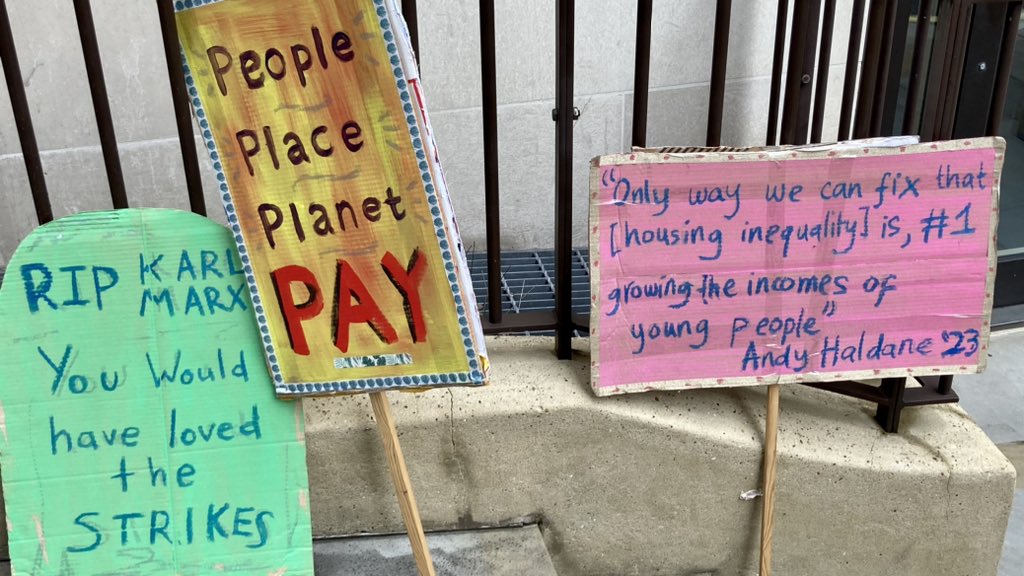 RIP KARL
MARX
You Would
have loved
the
STRIKES
People
Place
Planet
PAY
"Only way we can fix that
[housing inequality] is, #1
growing the incomes of
young people"
Andy Haldane '23